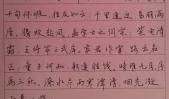 十旬休假，胜友如云；千里逢迎，高朋满
座。腾蛟起凤，孟学士之词宗；紫电清
霜，王将军之武库。家君作宰，路出名
区；童子何知，躬逢胜饯。时维九月，序
属三秋。潦水尽而寒潭清，烟光凝